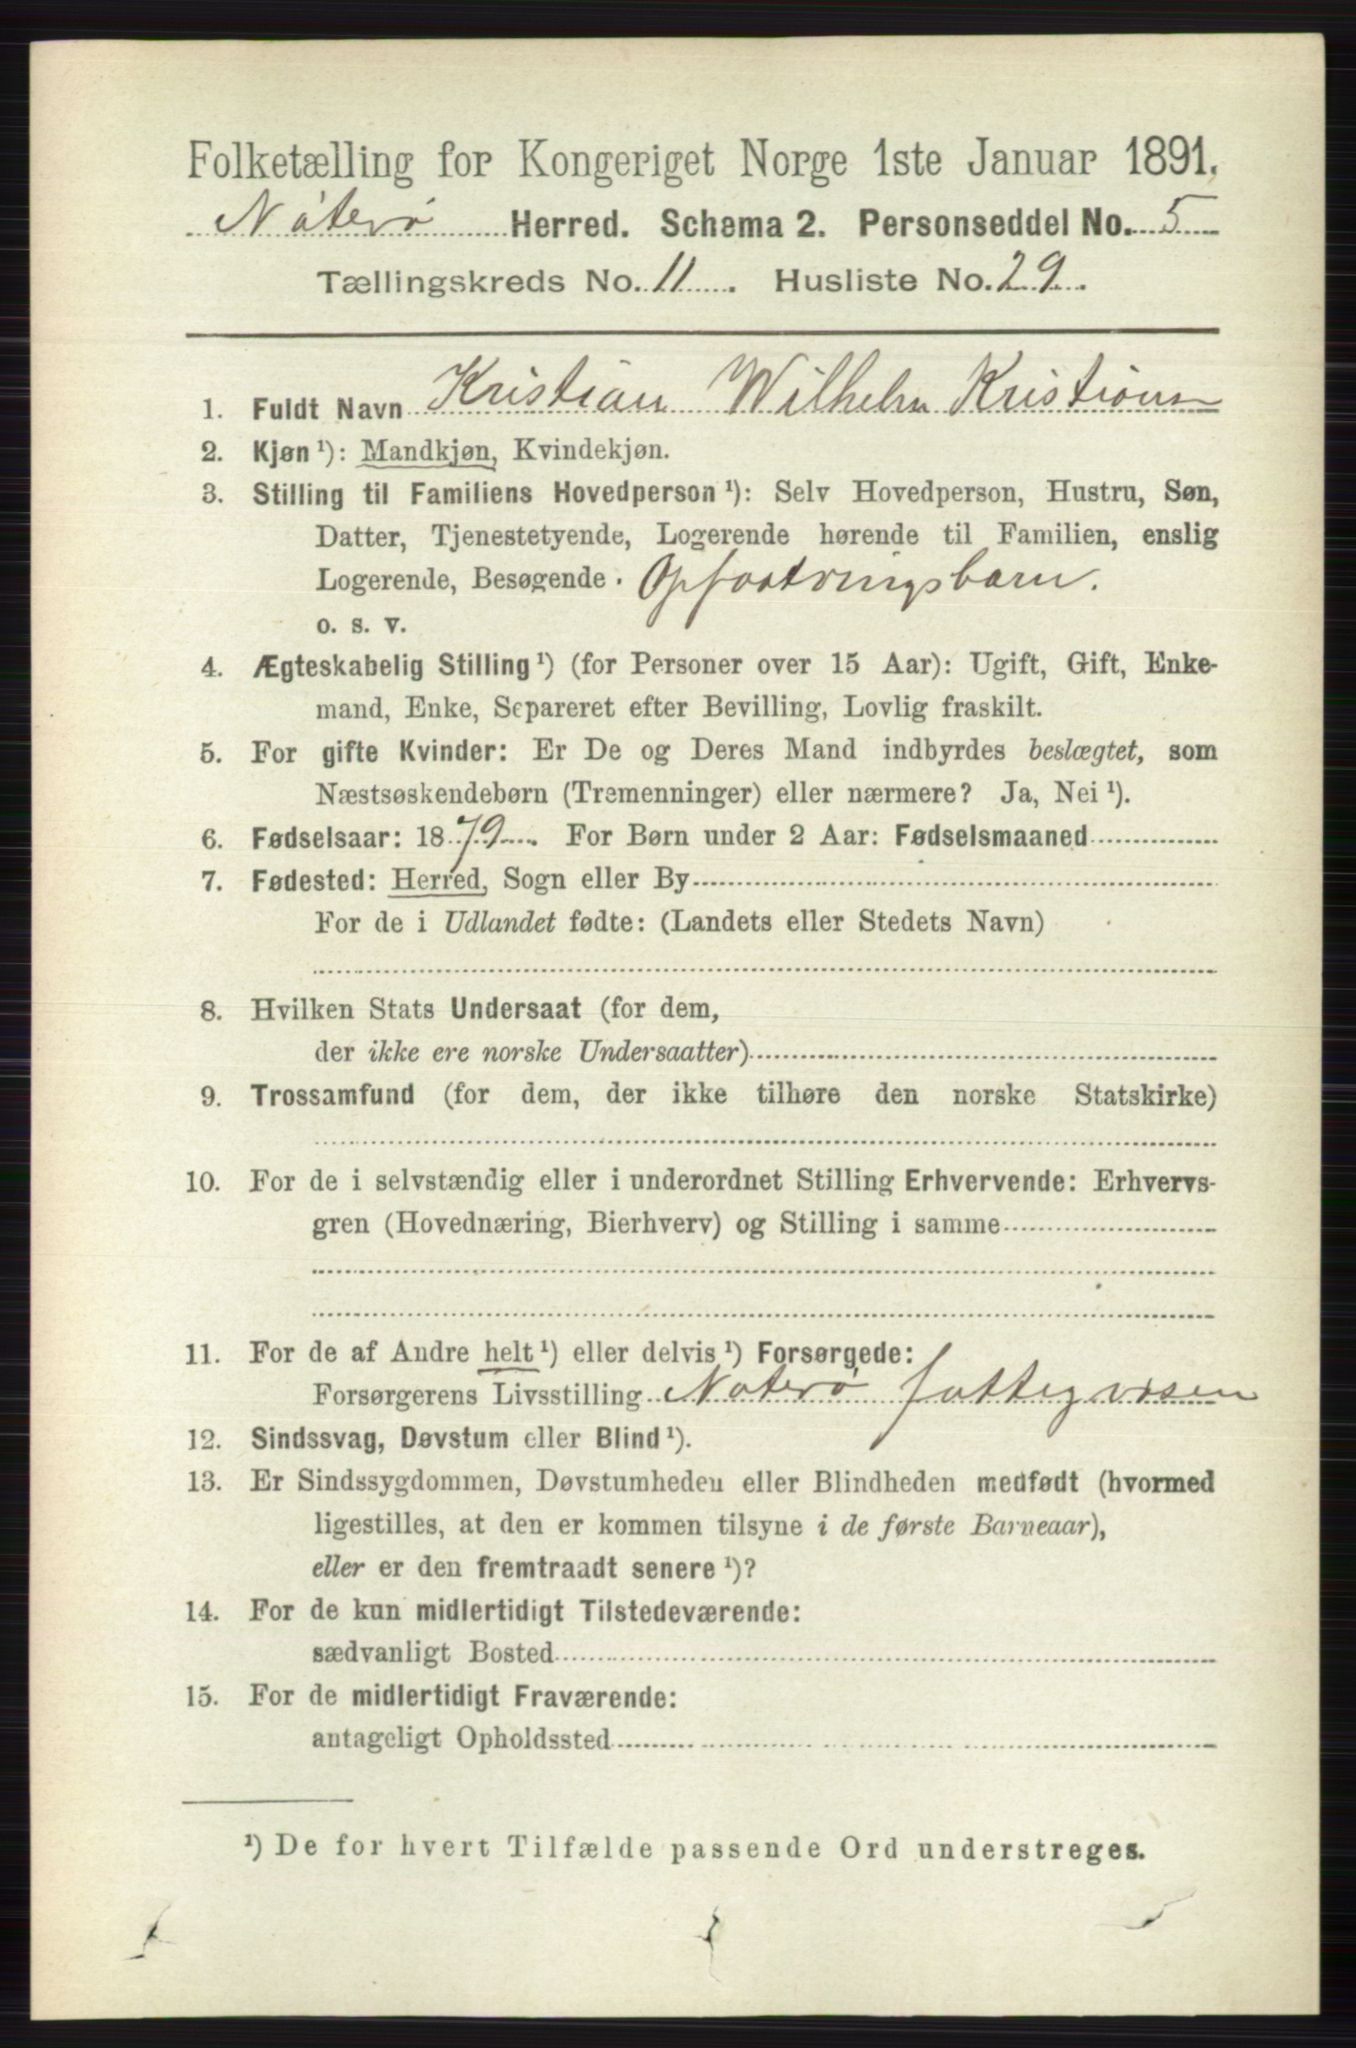 Folketælling for Kongeriget Norge 1ste Januar 1891.
Nøterø Herred. Schema 2. Personseddel No. 5
Tællingskreds No. 11. Husliste No. 29.
1. Fuldt Navn Kristian Wilhelm Kristians
2. Kjøn ¹): Mandkjøn, Kvindekjøn.
3. Stilling til Familiens Hovedperson ¹): Selv Hovedperson, Hustru, Søn,
Datter, Tjenestetyende, Logerende hørende til Familien, enslig
Logerende, Besøgende . Opfostringsbarn.
o. s. v.
4. Ægteskabelig Stilling ¹) (for Personer over 15 Aar): Ugift, Gift, Enke-
mand, Enke, Separeret efter Bevilling, Lovlig fraskilt.
5. For gifte Kvinder: Er De og Deres Mand indbyrdes beslægtet, som
Næstsøskendebørn (Tremenninger) eller nærmere? Ja, Nei ¹).
6. Fødselsaar: 1879. For Børn under 2 Aar: Fødselsmaaned
7. Fødested: Herred, Sogn eller By
For de i Udlandet fødte: (Landets eller Stedets Navn)
8. Hvilken Stats Undersaat (for dem,
der ikke ere norske Undersaatter)
9. Trossamfund (for dem, der ikke tilhøre den norske Statskirke)
10. For de i selvstændig eller i underordnet Stilling Erhvervende: Erhvervs-
gren (Hovednæring, Bierhverv) og Stilling i samme
11. For de af Andre helt ¹) eller delvis ¹) Forsørgede:
Forsørgerens Livsstilling Nøterø fattigvæsen
12. Sindssvag, Døvstum eller Blind ¹).
13. Er Sindssygdommen, Døvstumheden eller Blindheden medfødt (hvormed
ligestilles, at den er kommen tilsyne i de første Barneaar),
eller er den fremtraadt senere ¹)?
14. For de kun midlertidigt Tilstedeværende:
sædvanligt Bosted
15. For de midlertidigt Fraværende:
antageligt Opholdssted
¹) De for hvert Tilfælde passende Ord understreges.